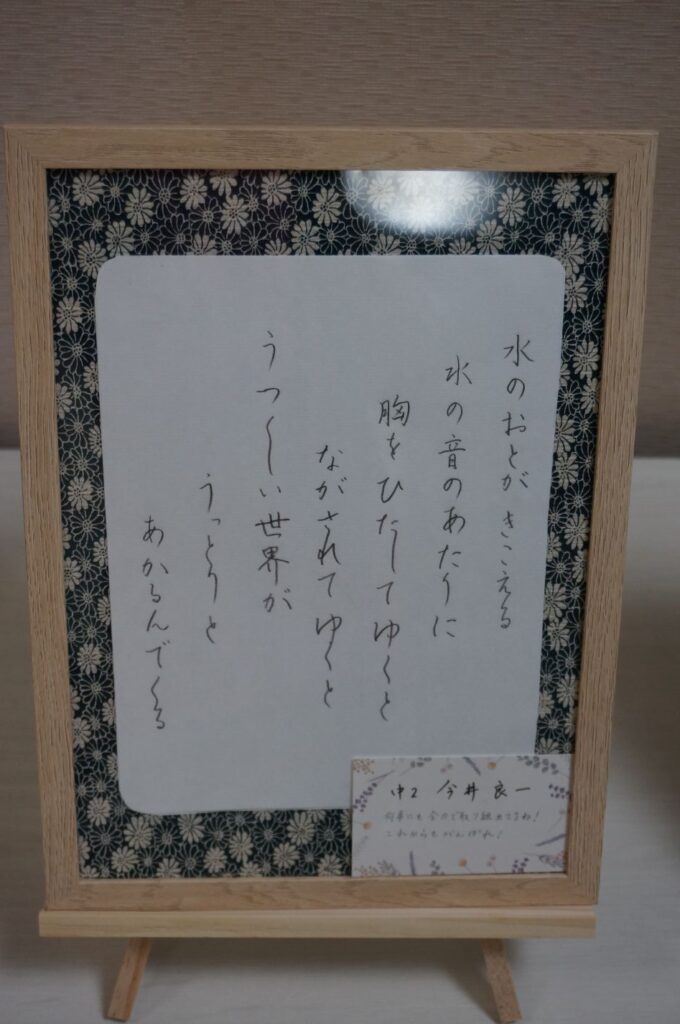 水のおとが きこえる
水の音のあたりに
胸をひたしてゆくと
ながされてゆくと
うつくしい世界が
うっとりと
あかるんでくる
中2 今井良一
何事にも全力で取り組めてるね!
これからもがんばれ!